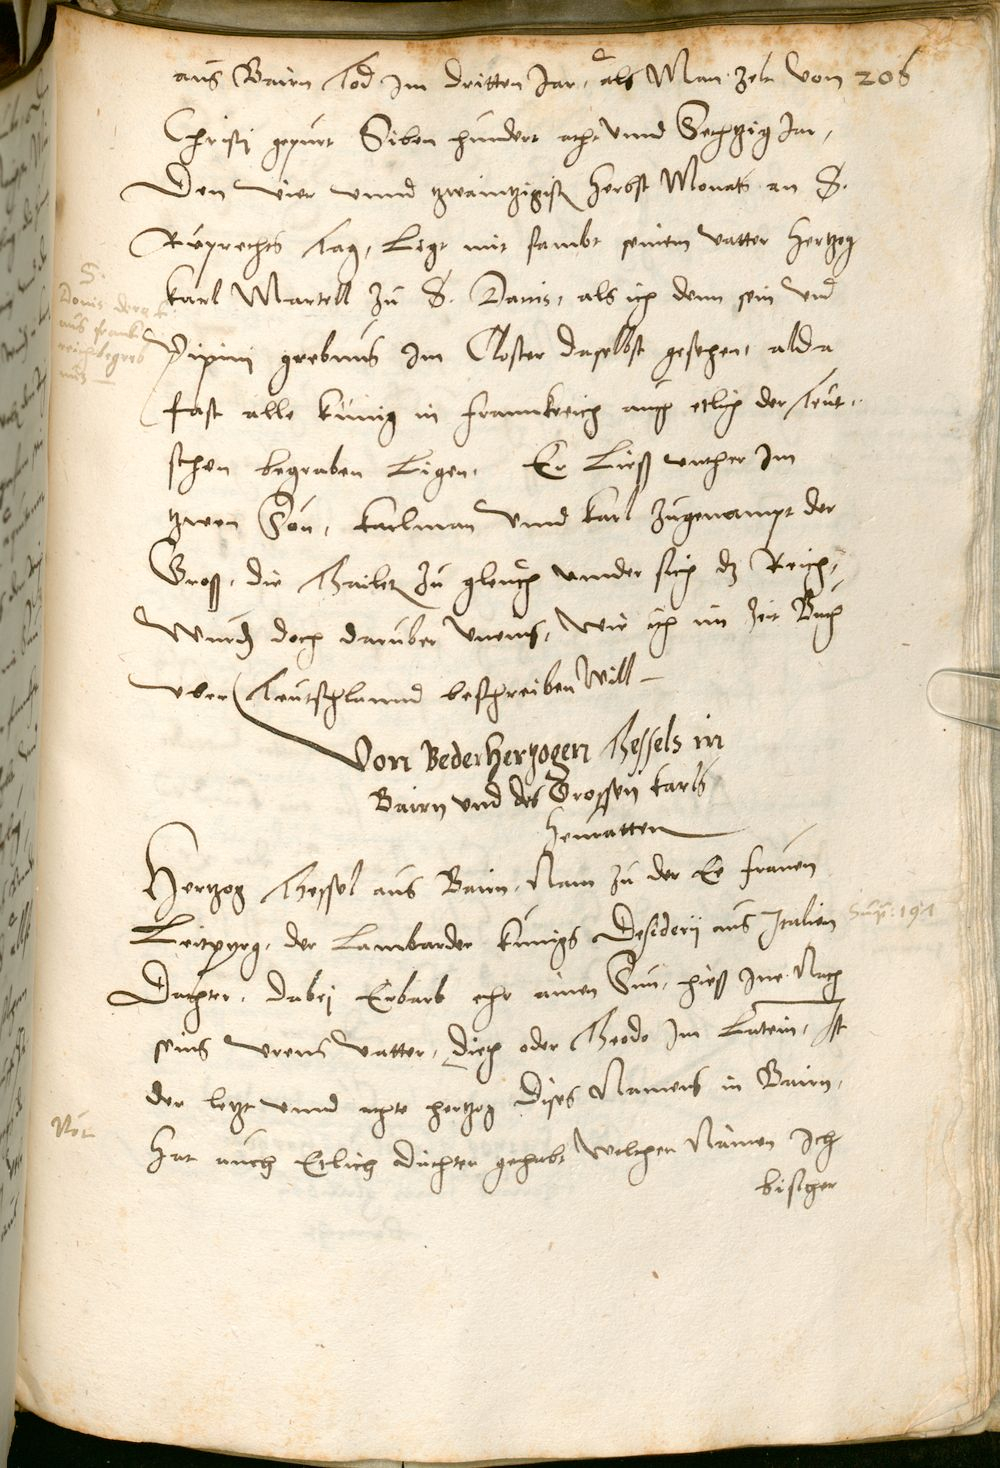 aus Bairn Tod Im dritten Jar, als Man zelt von 206
Christj gepurt Siben hundert acht vnnd Sechtzig Jar,
Den vier vnnd zwaintzigist herbst Monats an S.
Ruprechts Tag, Ligt mit sambt seinem vatter hertzog
karl Martell zu S. Danis, als ich denn sein vnd
S.
Donis der k.
aus frank
reich begreb
nus
Pipinj grebnus im Closter daselbst gesehen, alda
fast alle kunig in Frannkreich auch etlich der Teut-
schen begraben Ligen. Er Ließ vnther Im
tzwen Son, karlman vnnd karl zugenampt der
Groß, die Thailet zu gleich vnnder sich dz Reich,
Wurd doch daruber vneins, Wie ich im Zeit Buch
vber Teutschlannd beschreiben Will
Von Beder hertzogen Thessels in
Bairn vnd des Grossen karls
heuratten
Hertzog Thessel aus Bairn, Nam zu der Ee frauen
Leitpyrg, der Lambarder kunigs Desiderij aus Italien
Sup: 191
Dochter, dabej Erbarb ehr ainen Sun, hieß Ine Nach
seins vrens vatter, Dieth oder Theodo Im Latein, Ist
der letzt vnnd achte hertzog dises Namens in Bairn,
Not
Hat auch Etlich düchter gehabt Welcher Namen Ich
bißher